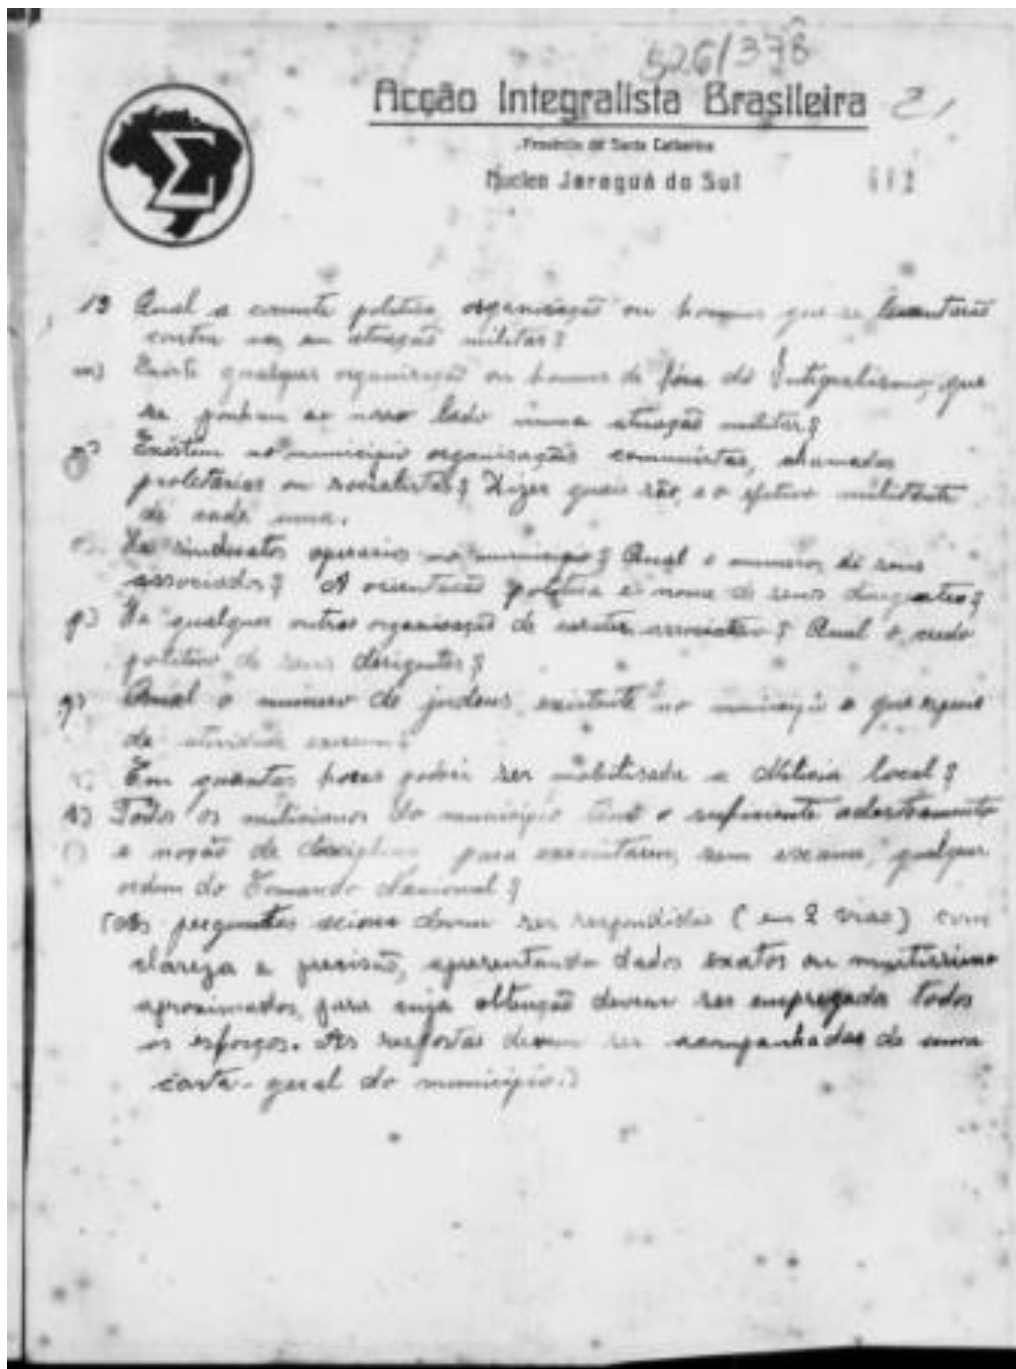 526/378
Acção Integralista Brasileira 21
Provincia de Santa Catharina
Nucleo Jaraguá do Sul
Σ
Qual a corrente politica, organisação ou homens que se levantarão
contra nos, em atuação militar?
m) Existe qualquer organisação ou homens de fóra do Integralismo, que
se ponham ao nosso lado numa atuação militar?
n) Existem no municipio organisações comunistas, chamadas
proletarias ou socialistas? Dizer quais são, e o efetivo militante
de cada uma.
o) Ha sindicatos operarios no municipio? Qual o numero de seus
associados? A orientação politica e nome de seus dirigentes?
p) Ha qualquer outra organisação de carater associativo? Qual o credo
politico de seus dirigentes?
q) Qual o numero de judeus existente no municipio e que especie
de atividade exercem?
r) Em quantas horas poderá ser mobilisada a Milicia local?
s) Todos os milicianos do municipio tem o suficiente adestramento
e noção de disciplina para executarem, sem exame, qualquer
ordem do Comando Nacional?
(As perguntas acima devem ser respondidas (em 2 vias) com
clareza e precisão, apresentando dados exatos ou muitissimo
aproximados, para cuja obtenção devem ser empregados todos
os esforços. As respostas devem ser acompanhadas de uma
carta-geral do municipio.)